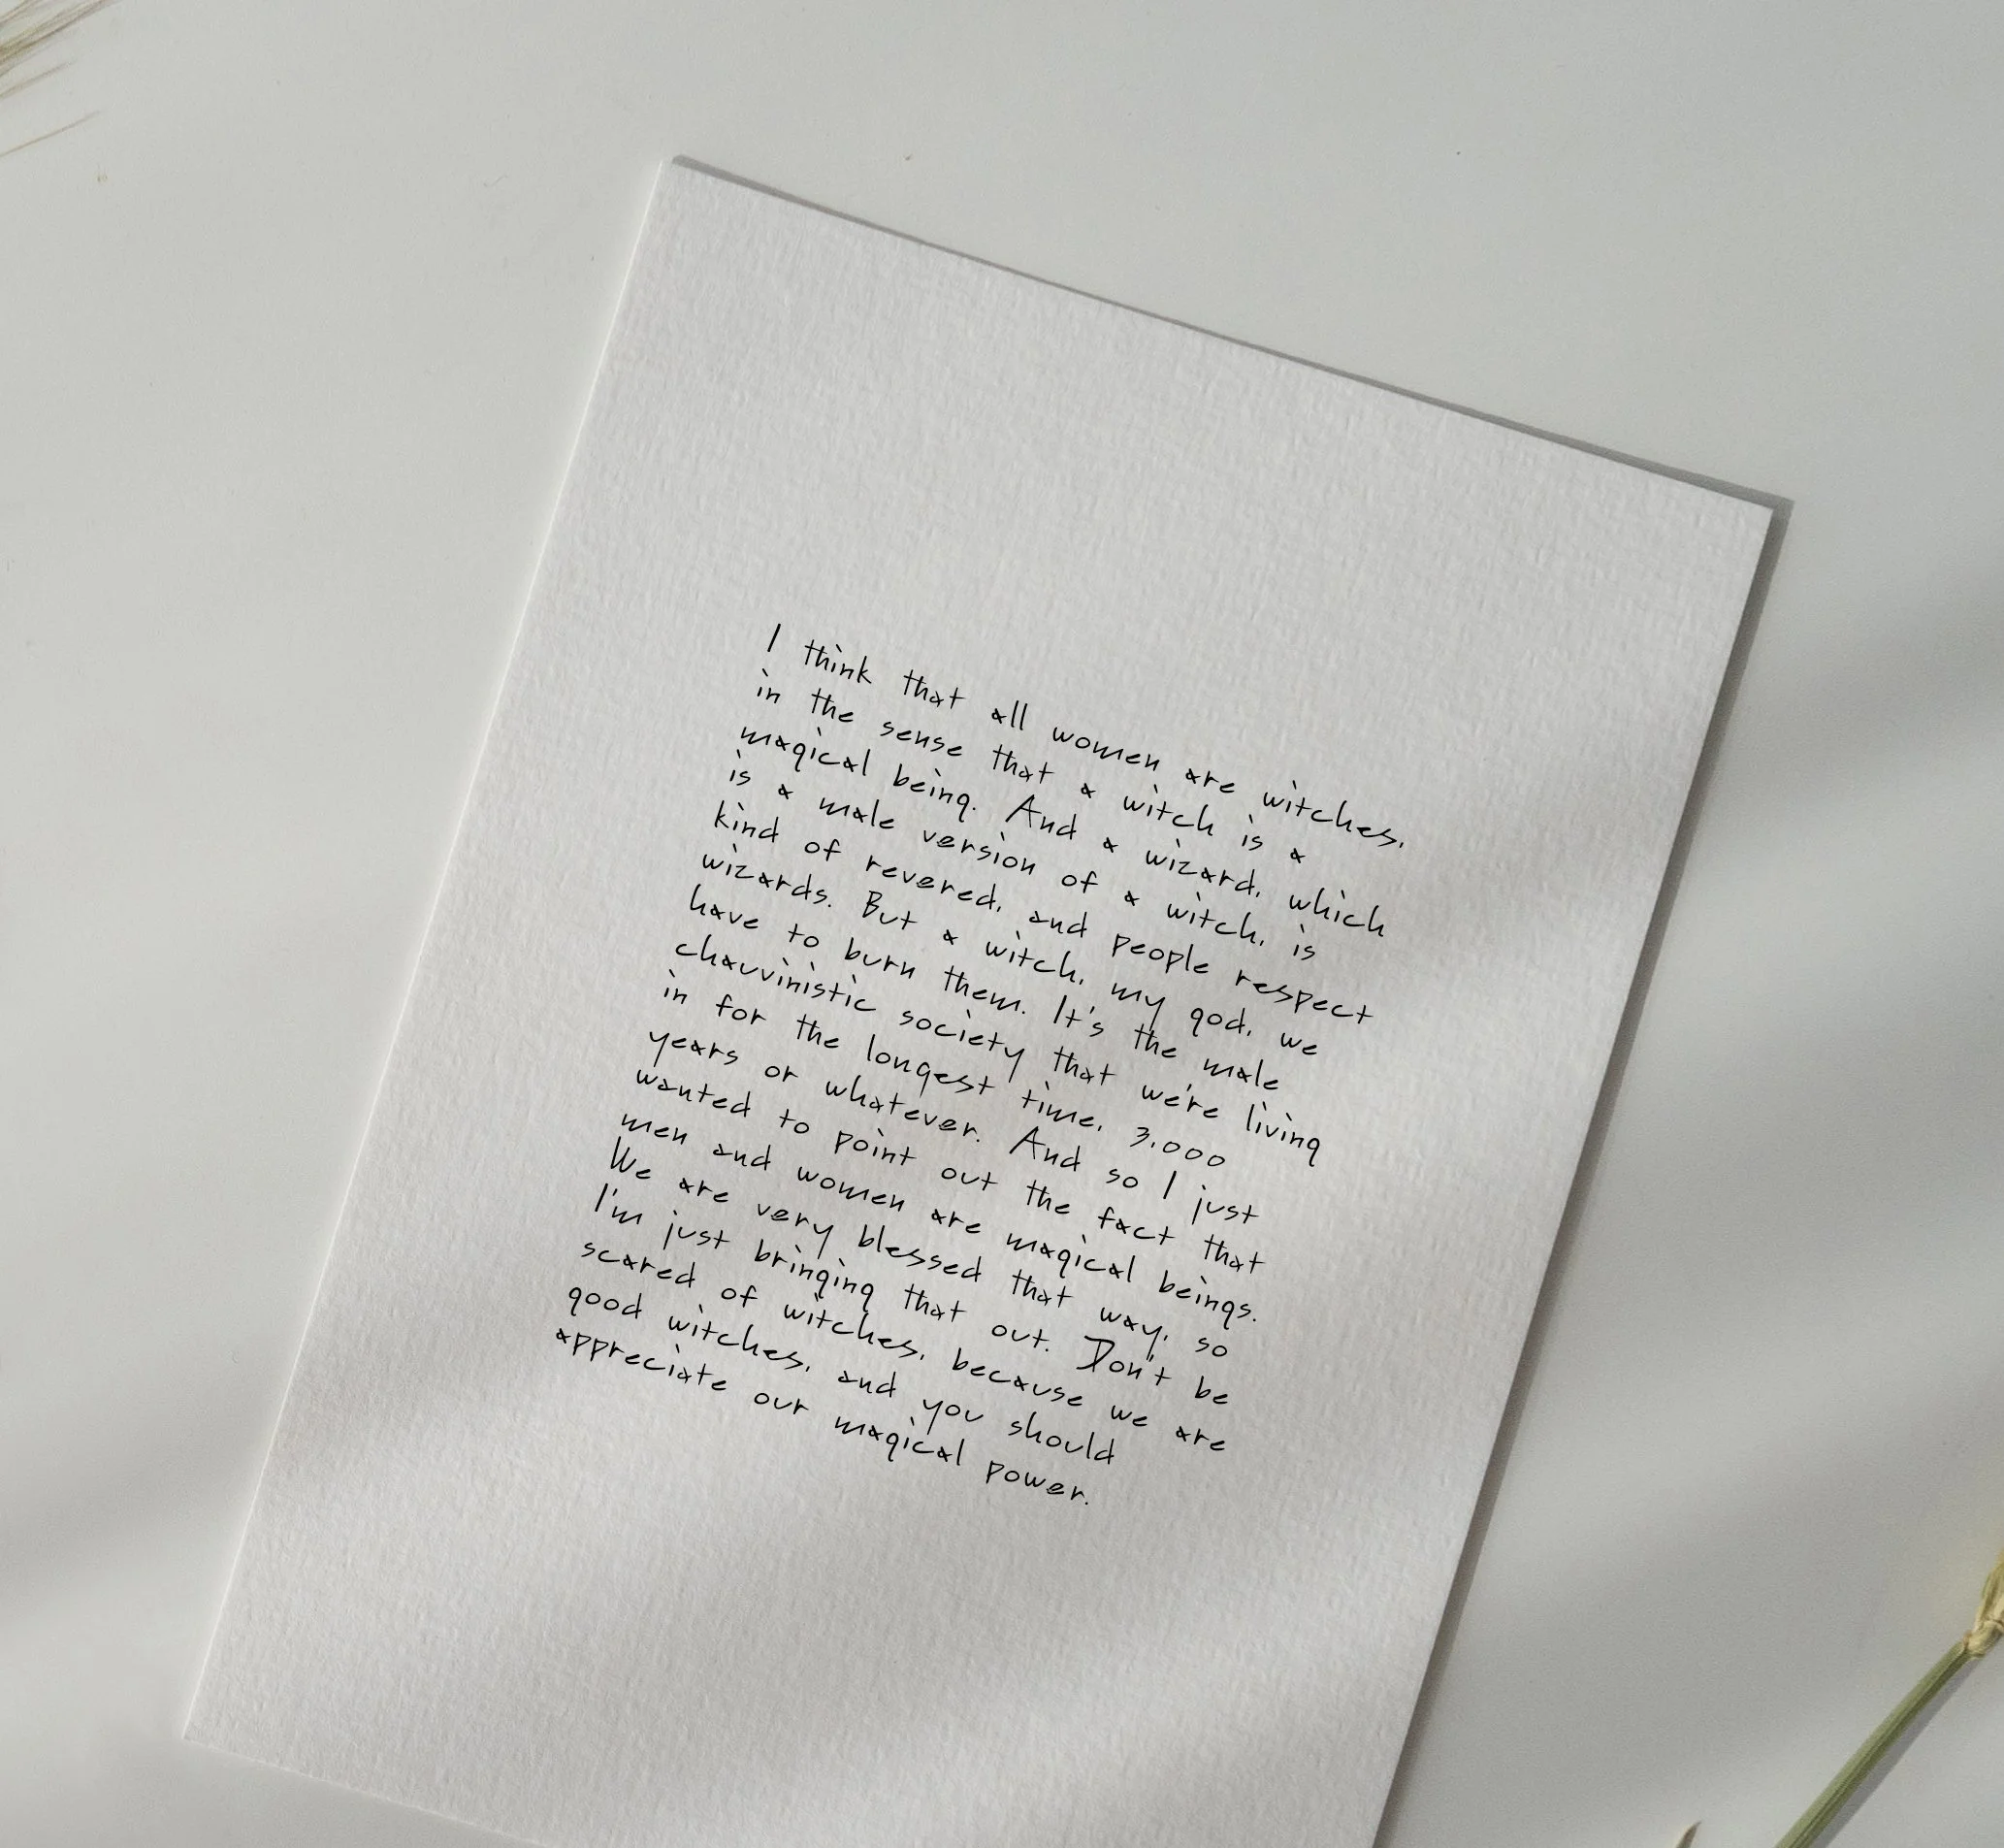 I think that all women are witches,
in the sense that a witch is a
magical being. And a wizard, which
is a male version of a witch, is
kind of revered, and people respect
wizards. But a witch, my god, we
have to burn them. It's the male
chauvinistic society that we're living
in for the longest time, 3,000
years or whatever. And so I just
wanted to point out the fact that
men and women are magical beings.
We are very blessed that way, so
I'm just bringing that out. Don't be
scared of witches, because we are
good witches, and you should
appreciate our magical power.